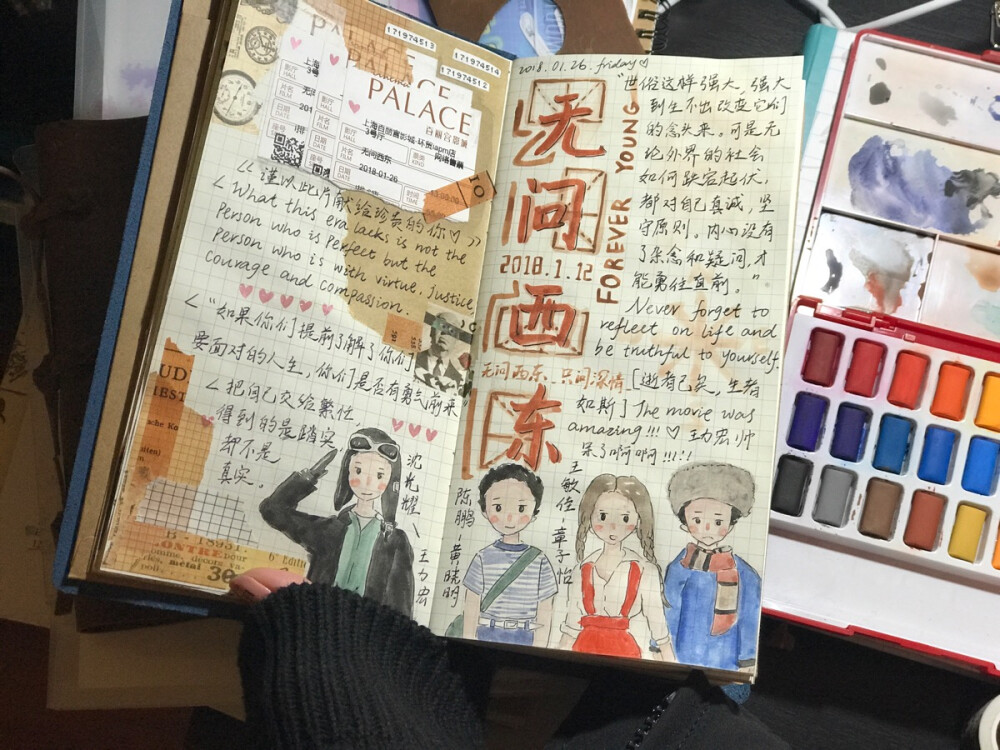 PALACE
171974513
171974514
171974512
PALACE
百丽宫影城
上海
3号
影厅
HALL
片名
FILM
日期
DATE
座号
201
影厅
HALL
上海百丽宫影城-环贸iapm店
3号厅
票类
网络售票
片名
FILM
无问西东
日期
DATE
2018-01-26
时间
TIME
《谨以此片献给珍贵的你♡》
< What this era lacks is not the
Person who is Perfect but the
Person who is with virtue, justice,
courage and compassion.
< "如果你们提前了解了你们
要面对的人生,你们是否有勇气前来"
< 把自己交给繁忙,
得到的是踏实
却不是
真实.
沈光耀
\
王力宏
UD
IEST
ONTRE pour
omme, décors va-
métal
3e
6 Editi
2018.01.26.friday♡
无
问
2018.1.12
西
无问西东_只问深情
东
FOREVER YOUNG
"世俗这样强大,强大
到生不出改变它们
的念头来。可是无
论外界的社会
如何跌宕起伏,
都对自己真诚,坚
守原则,内心没有
了杂念和疑问,才
能勇往直前。"
Never forget to
reflect on life and
be truthful to yourself.
[逝者已矣,生者
如斯] The movie was
amazing!!! ♡ 王力宏帅
呆了啊啊!!!!
陈鹏-黄晓明
王敏佳-章子怡